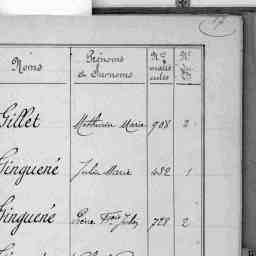 Noms Prénoms & Surnoms Nos matricules
Gillet Mathurin Marie 908 2
Ginguené Julien Marie 482 1
Ginguené Pierre Frois Julien 728 2